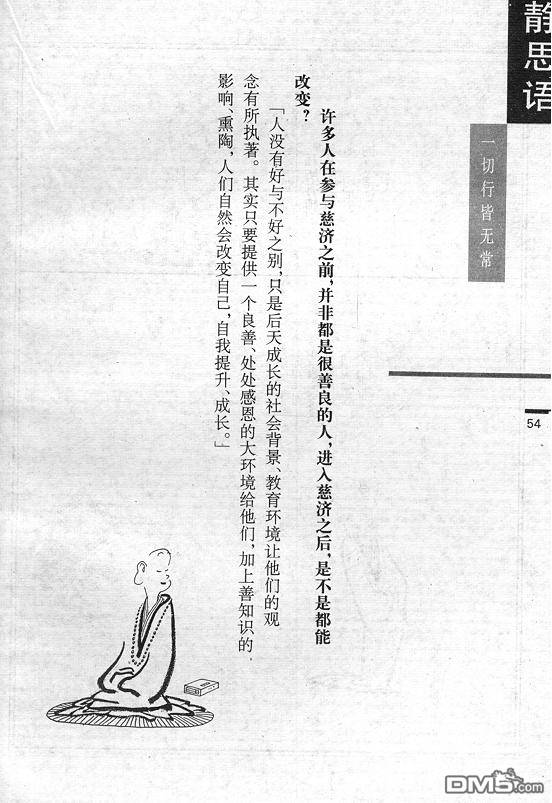 静思语
一切行皆无常
54
许多人在参与慈济之前，并非都是很善良的人，进入慈济之后，是不是都能
改变？
「人没有好与不好之别，只是后天成长的社会背景、教育环境让他们的观
念有所执著。其实只要提供一个良善、处处感恩的大环境给他们，加上善知识的
影响、熏陶，人们自然会改变自己，自我提升、成长。」
DM5.com